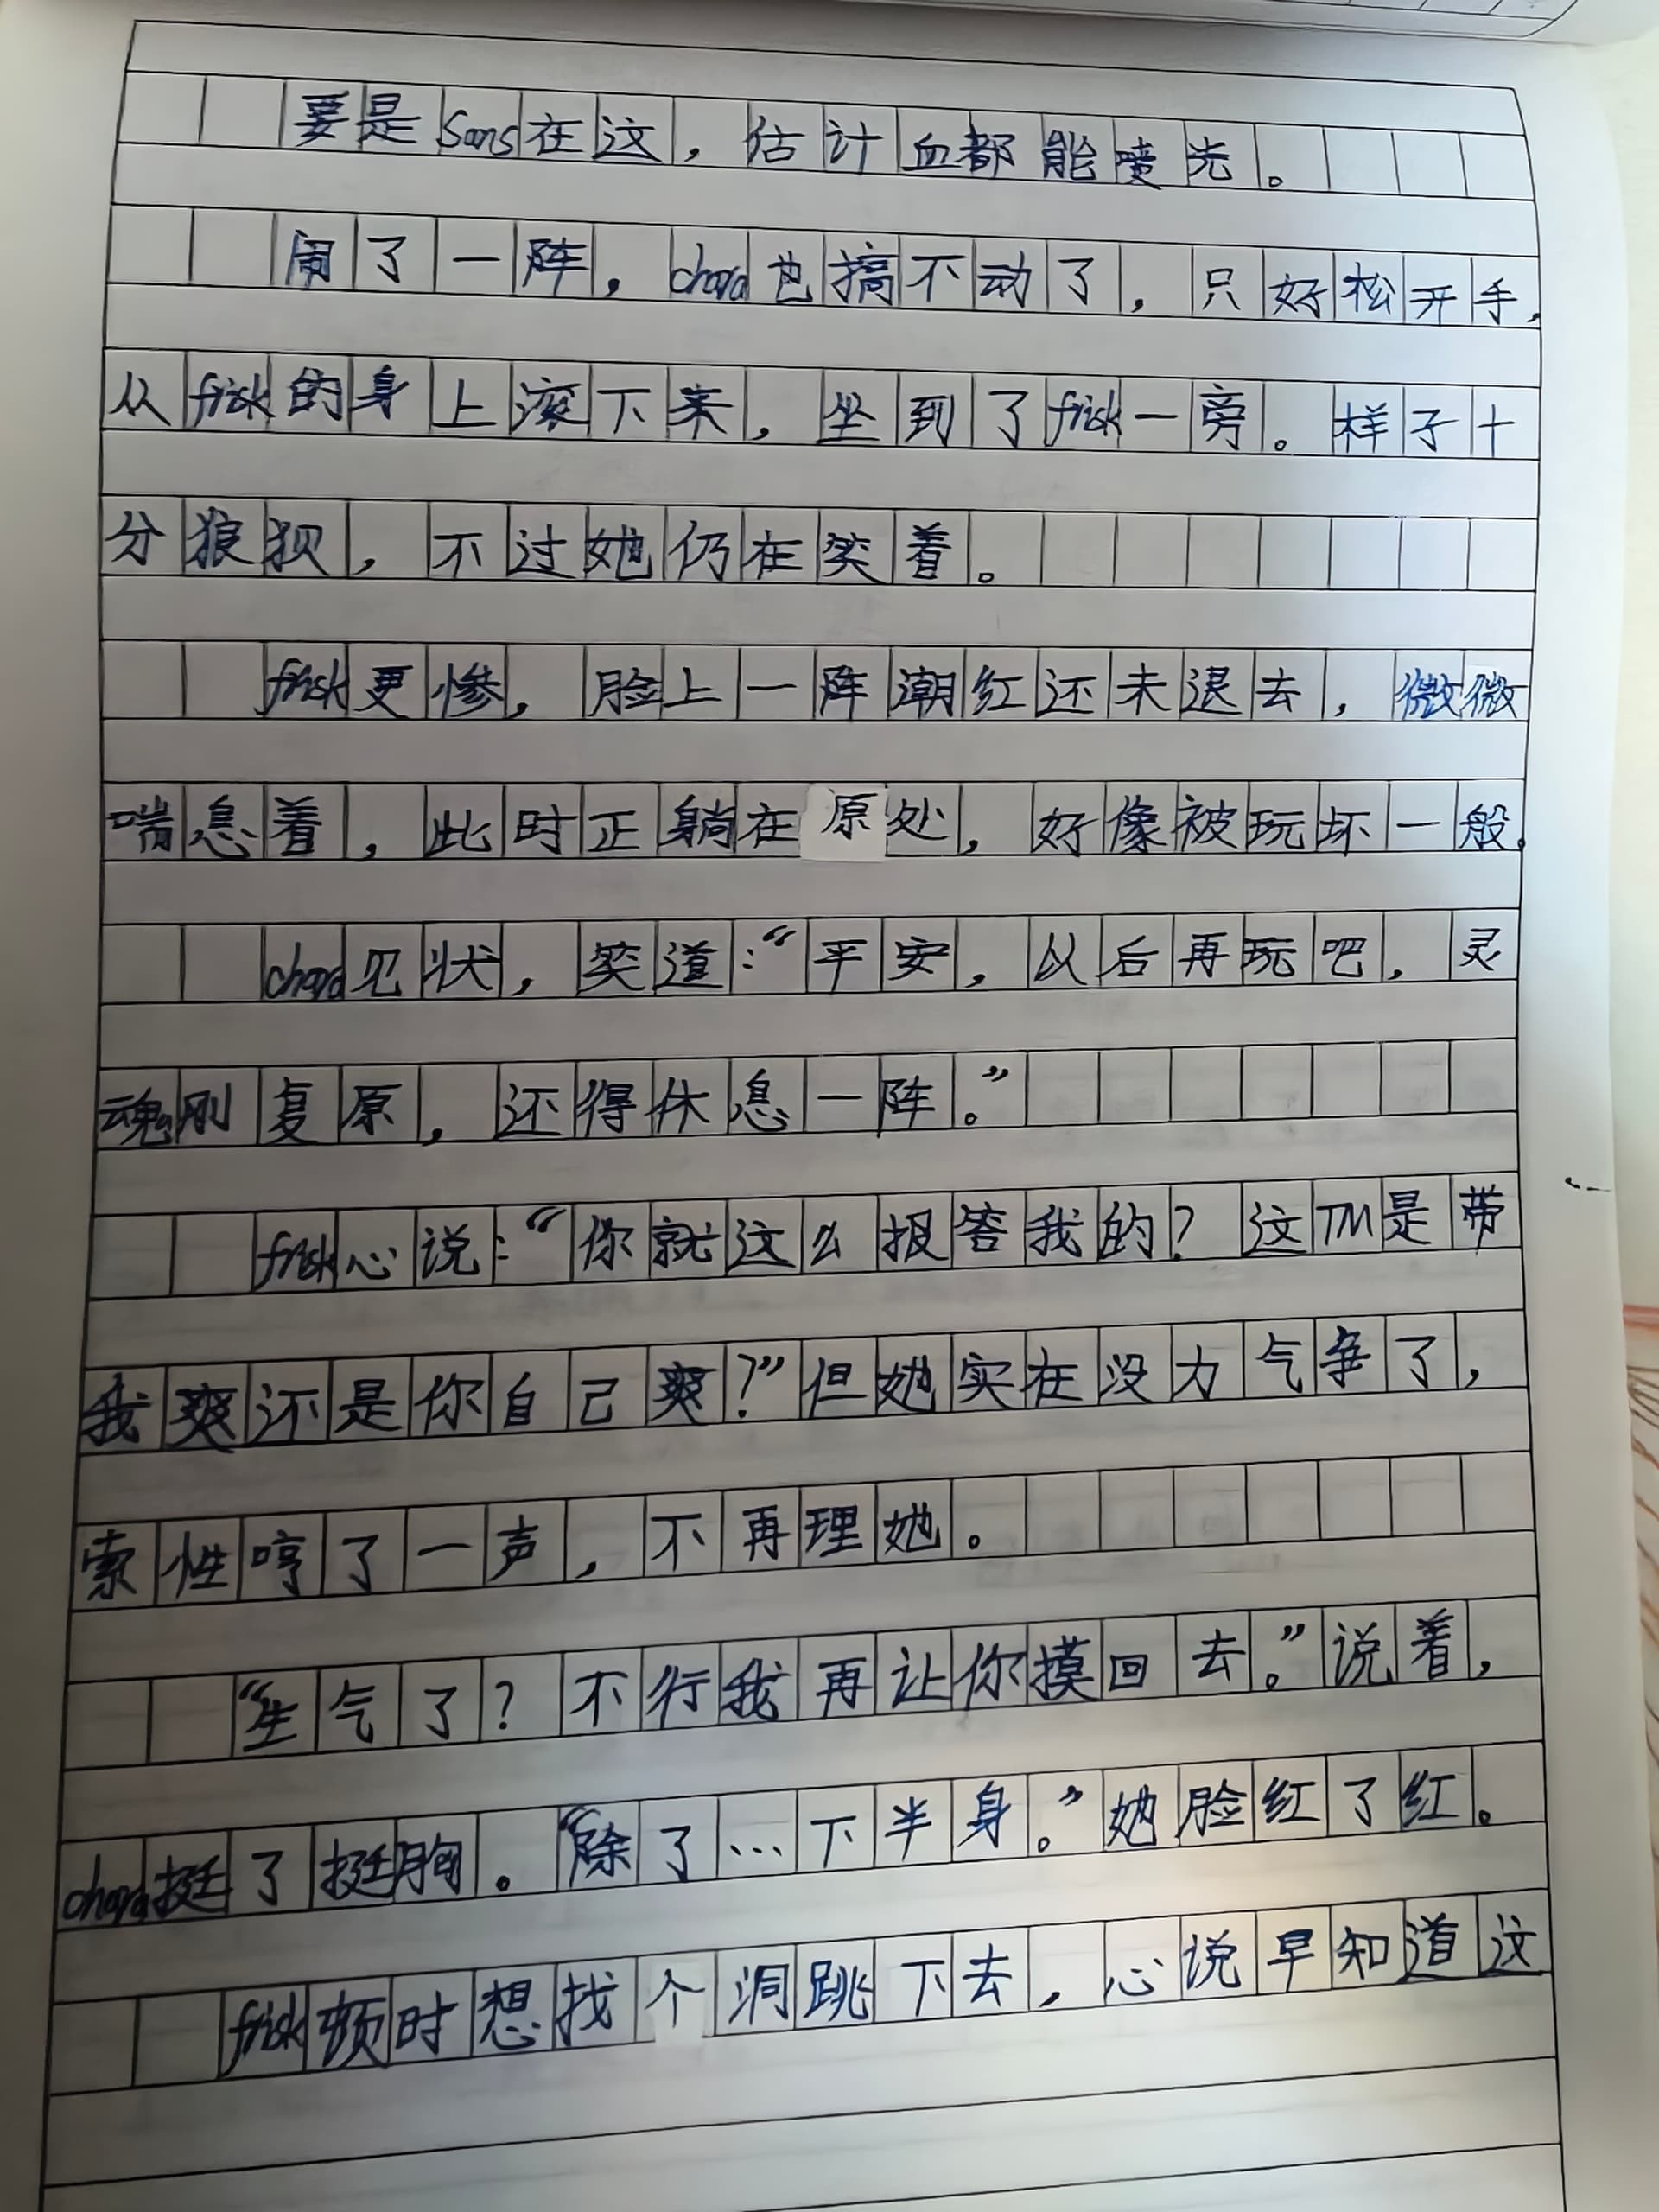 要是Sans在这，估计血都能喷光。
闹了一阵，chara也搞不动了，只好松开手，
从frisk的身上滚下来，坐到了frisk一旁。样子十
分狼狈，不过她仍在笑着。
frisk更惨，脸上一阵潮红还未退去，微微
喘息着，此时正躺在原处，好像被玩坏一般。
chara见状，笑道：“平安，以后再玩吧，灵
魂刚复原，还得休息一阵。”
frisk心说：“你就这么报答我的？这TM是带
我爽还是你自己爽？”但她实在没力气争了，
索性哼了一声，不再理她。
“生气了？不行我再让你摸回去。”说着，
chara挺了挺胸。“除了…下半身。”她脸红了红。
frisk顿时想找个洞跳下去，心说早知道这